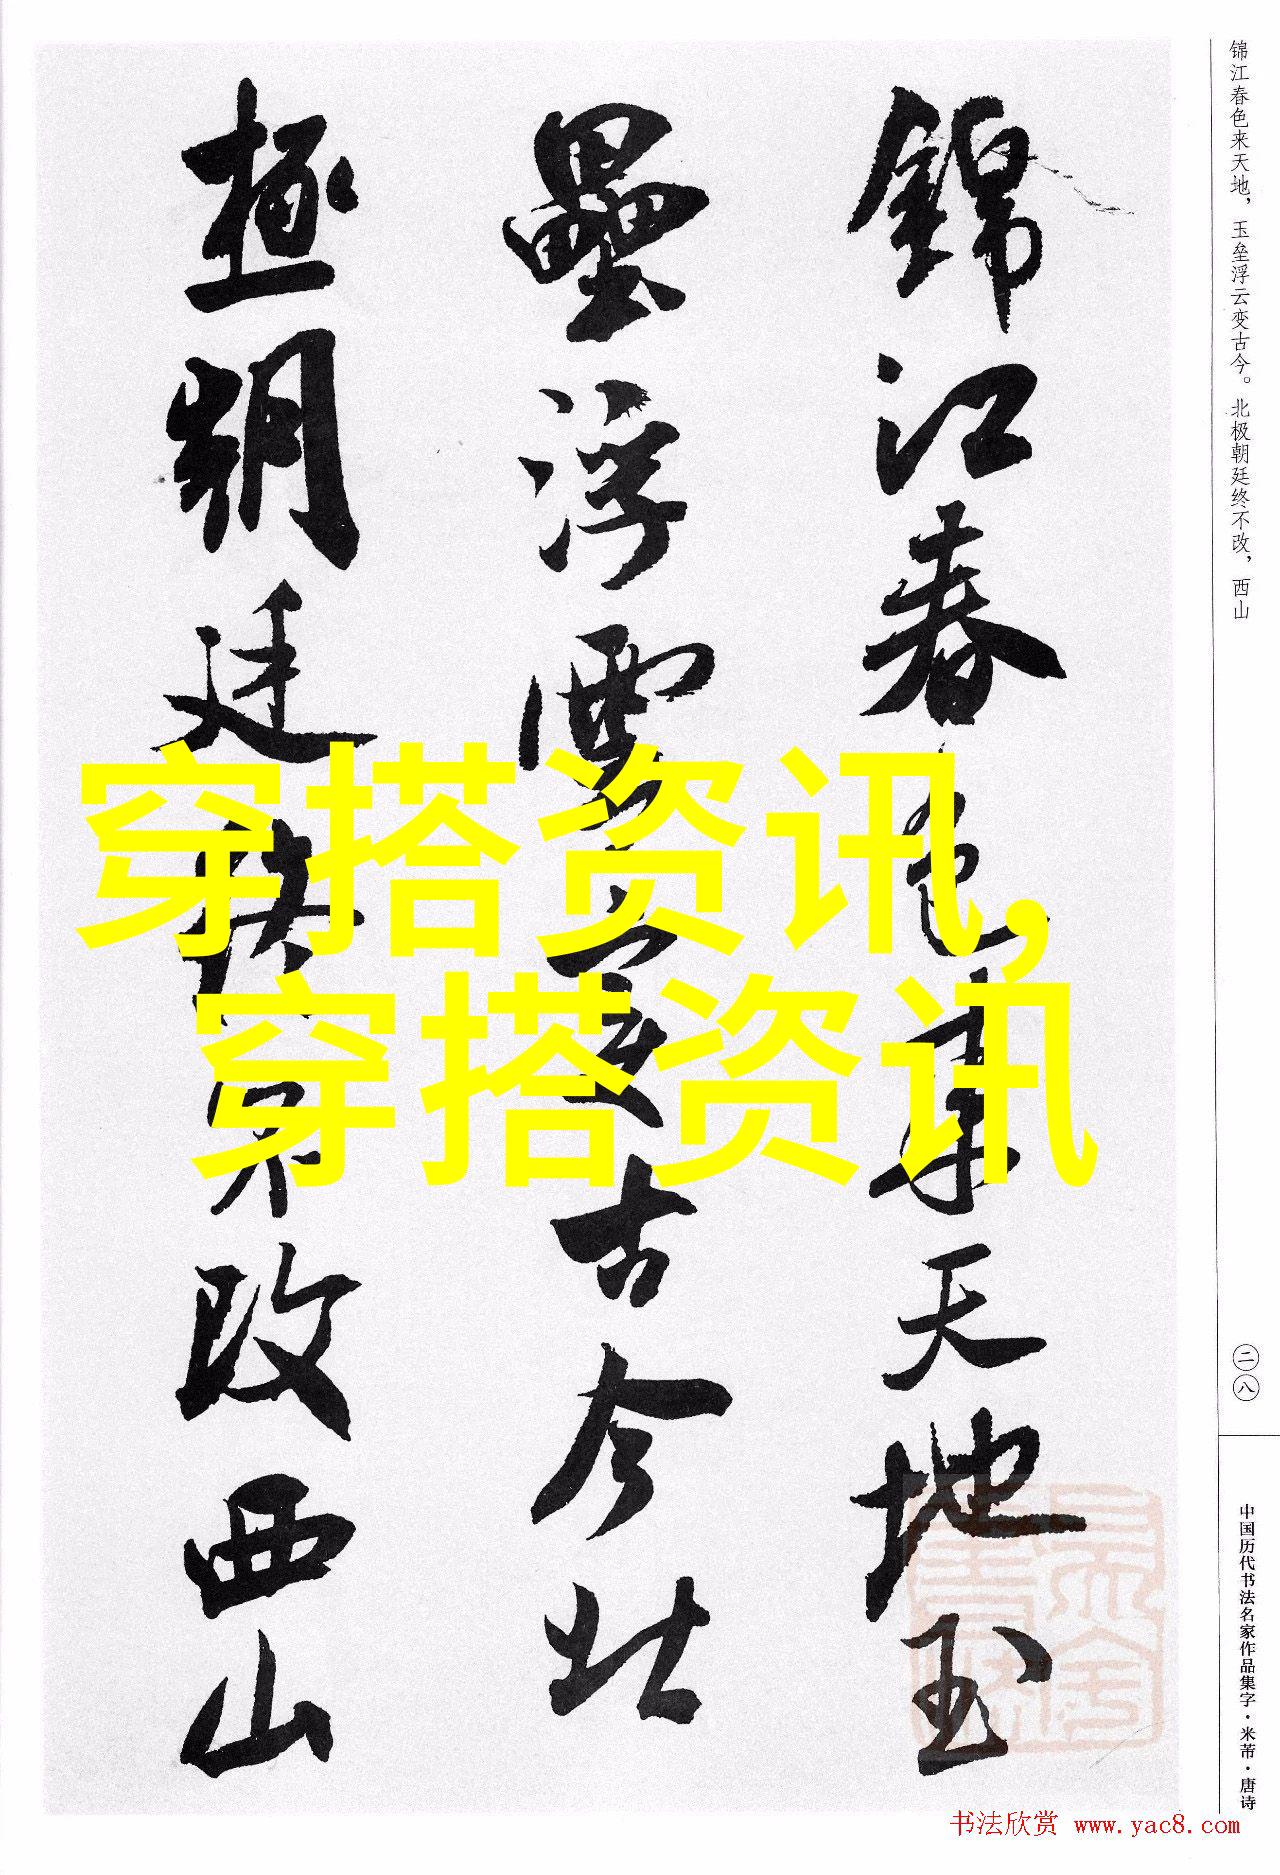 锦江春色来天地，玉垒浮云变古今。北极朝廷终不改，西山
錦江春色来天地玉
壘浮雲變古今北
極朝廷終不改西山
穿搭资讯，
穿搭资讯
二八
中国历代书法名家作品集字·米芾·唐诗
书法欣赏 www.yac8.com